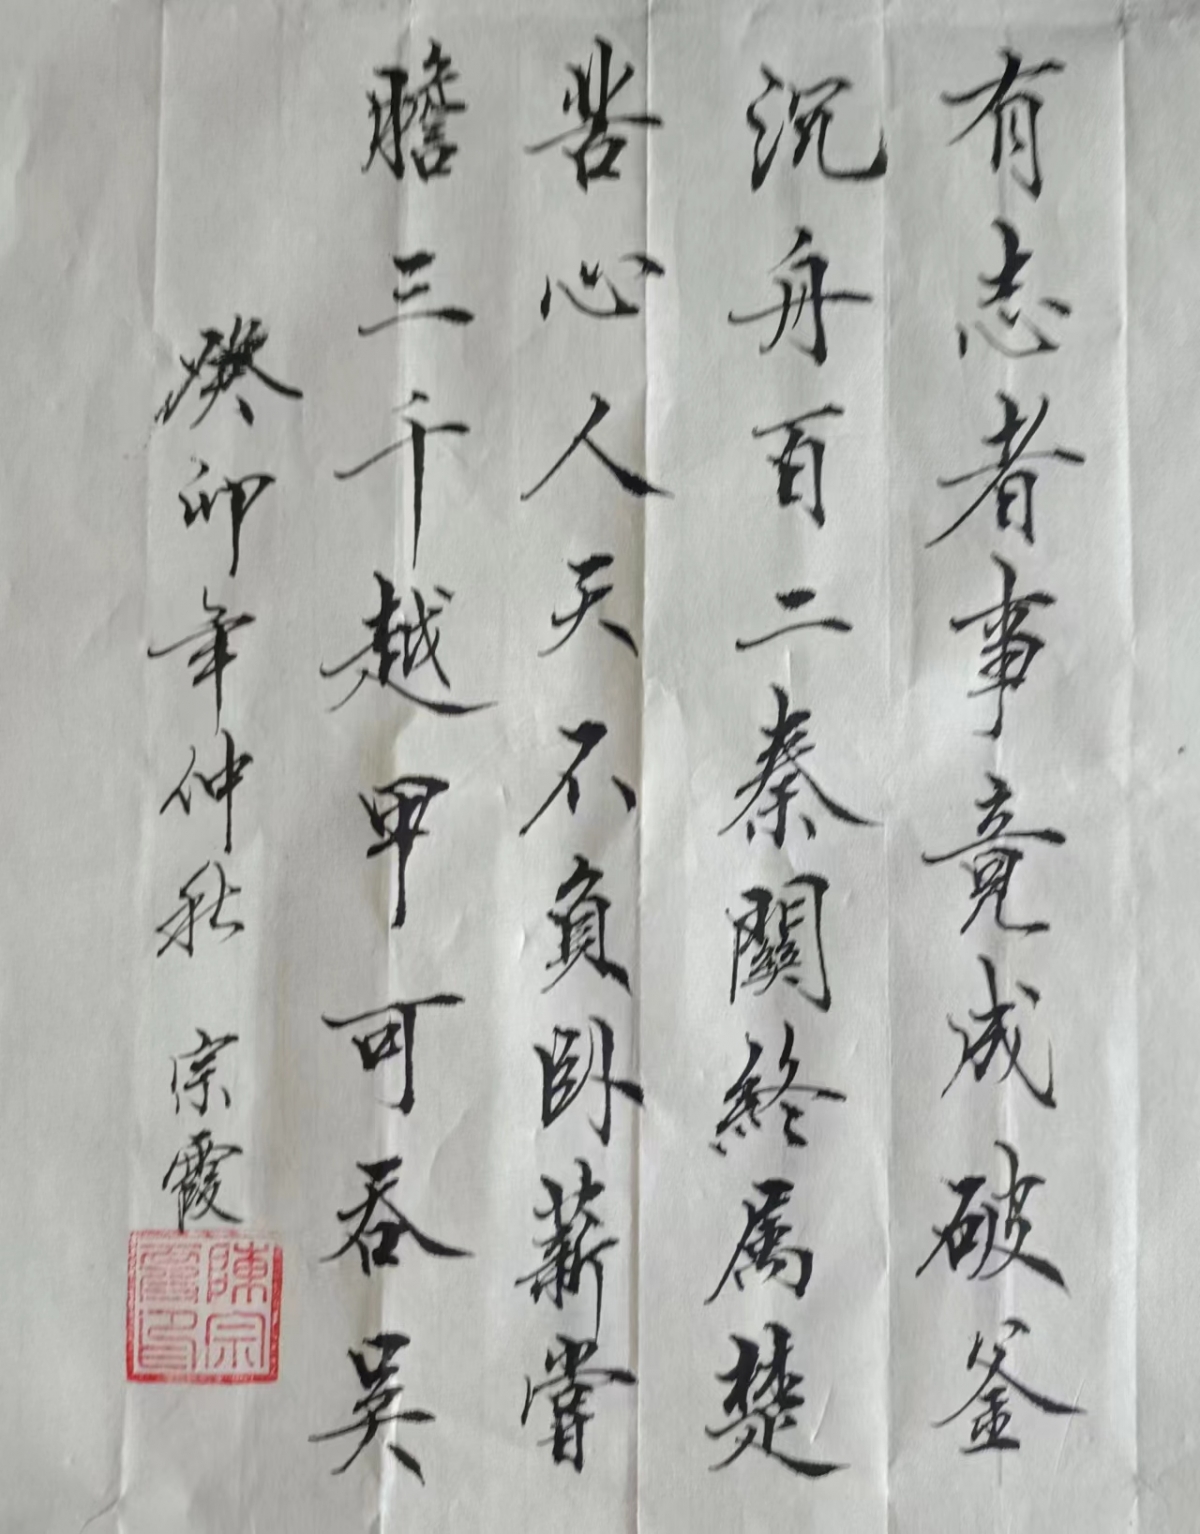 有志者事竟成破釜
沉舟百二秦關終属楚
苦心人天不負卧薪嘗
膽三千越甲可吞吴
癸卯年仲秋 宗霞
陳宗霞印